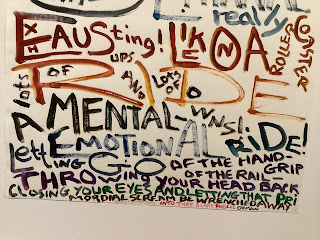 really
EXHAUSting! LIKE ON A ROLLER COASTER
RIDE
lots OF UPS AND LOTS OF DOWNS!
A MENTAL-
EMOTIONAL RiDE!
LettING GO OF THE HAND-GRIP
OF THE RAIL-
THROWING YOUR HEAD BACK
CLOSING YOUR EYES AND LETTING THAT PRI
MORDIAL SCREAM BE WRENCHED AWAY
INTO THAT